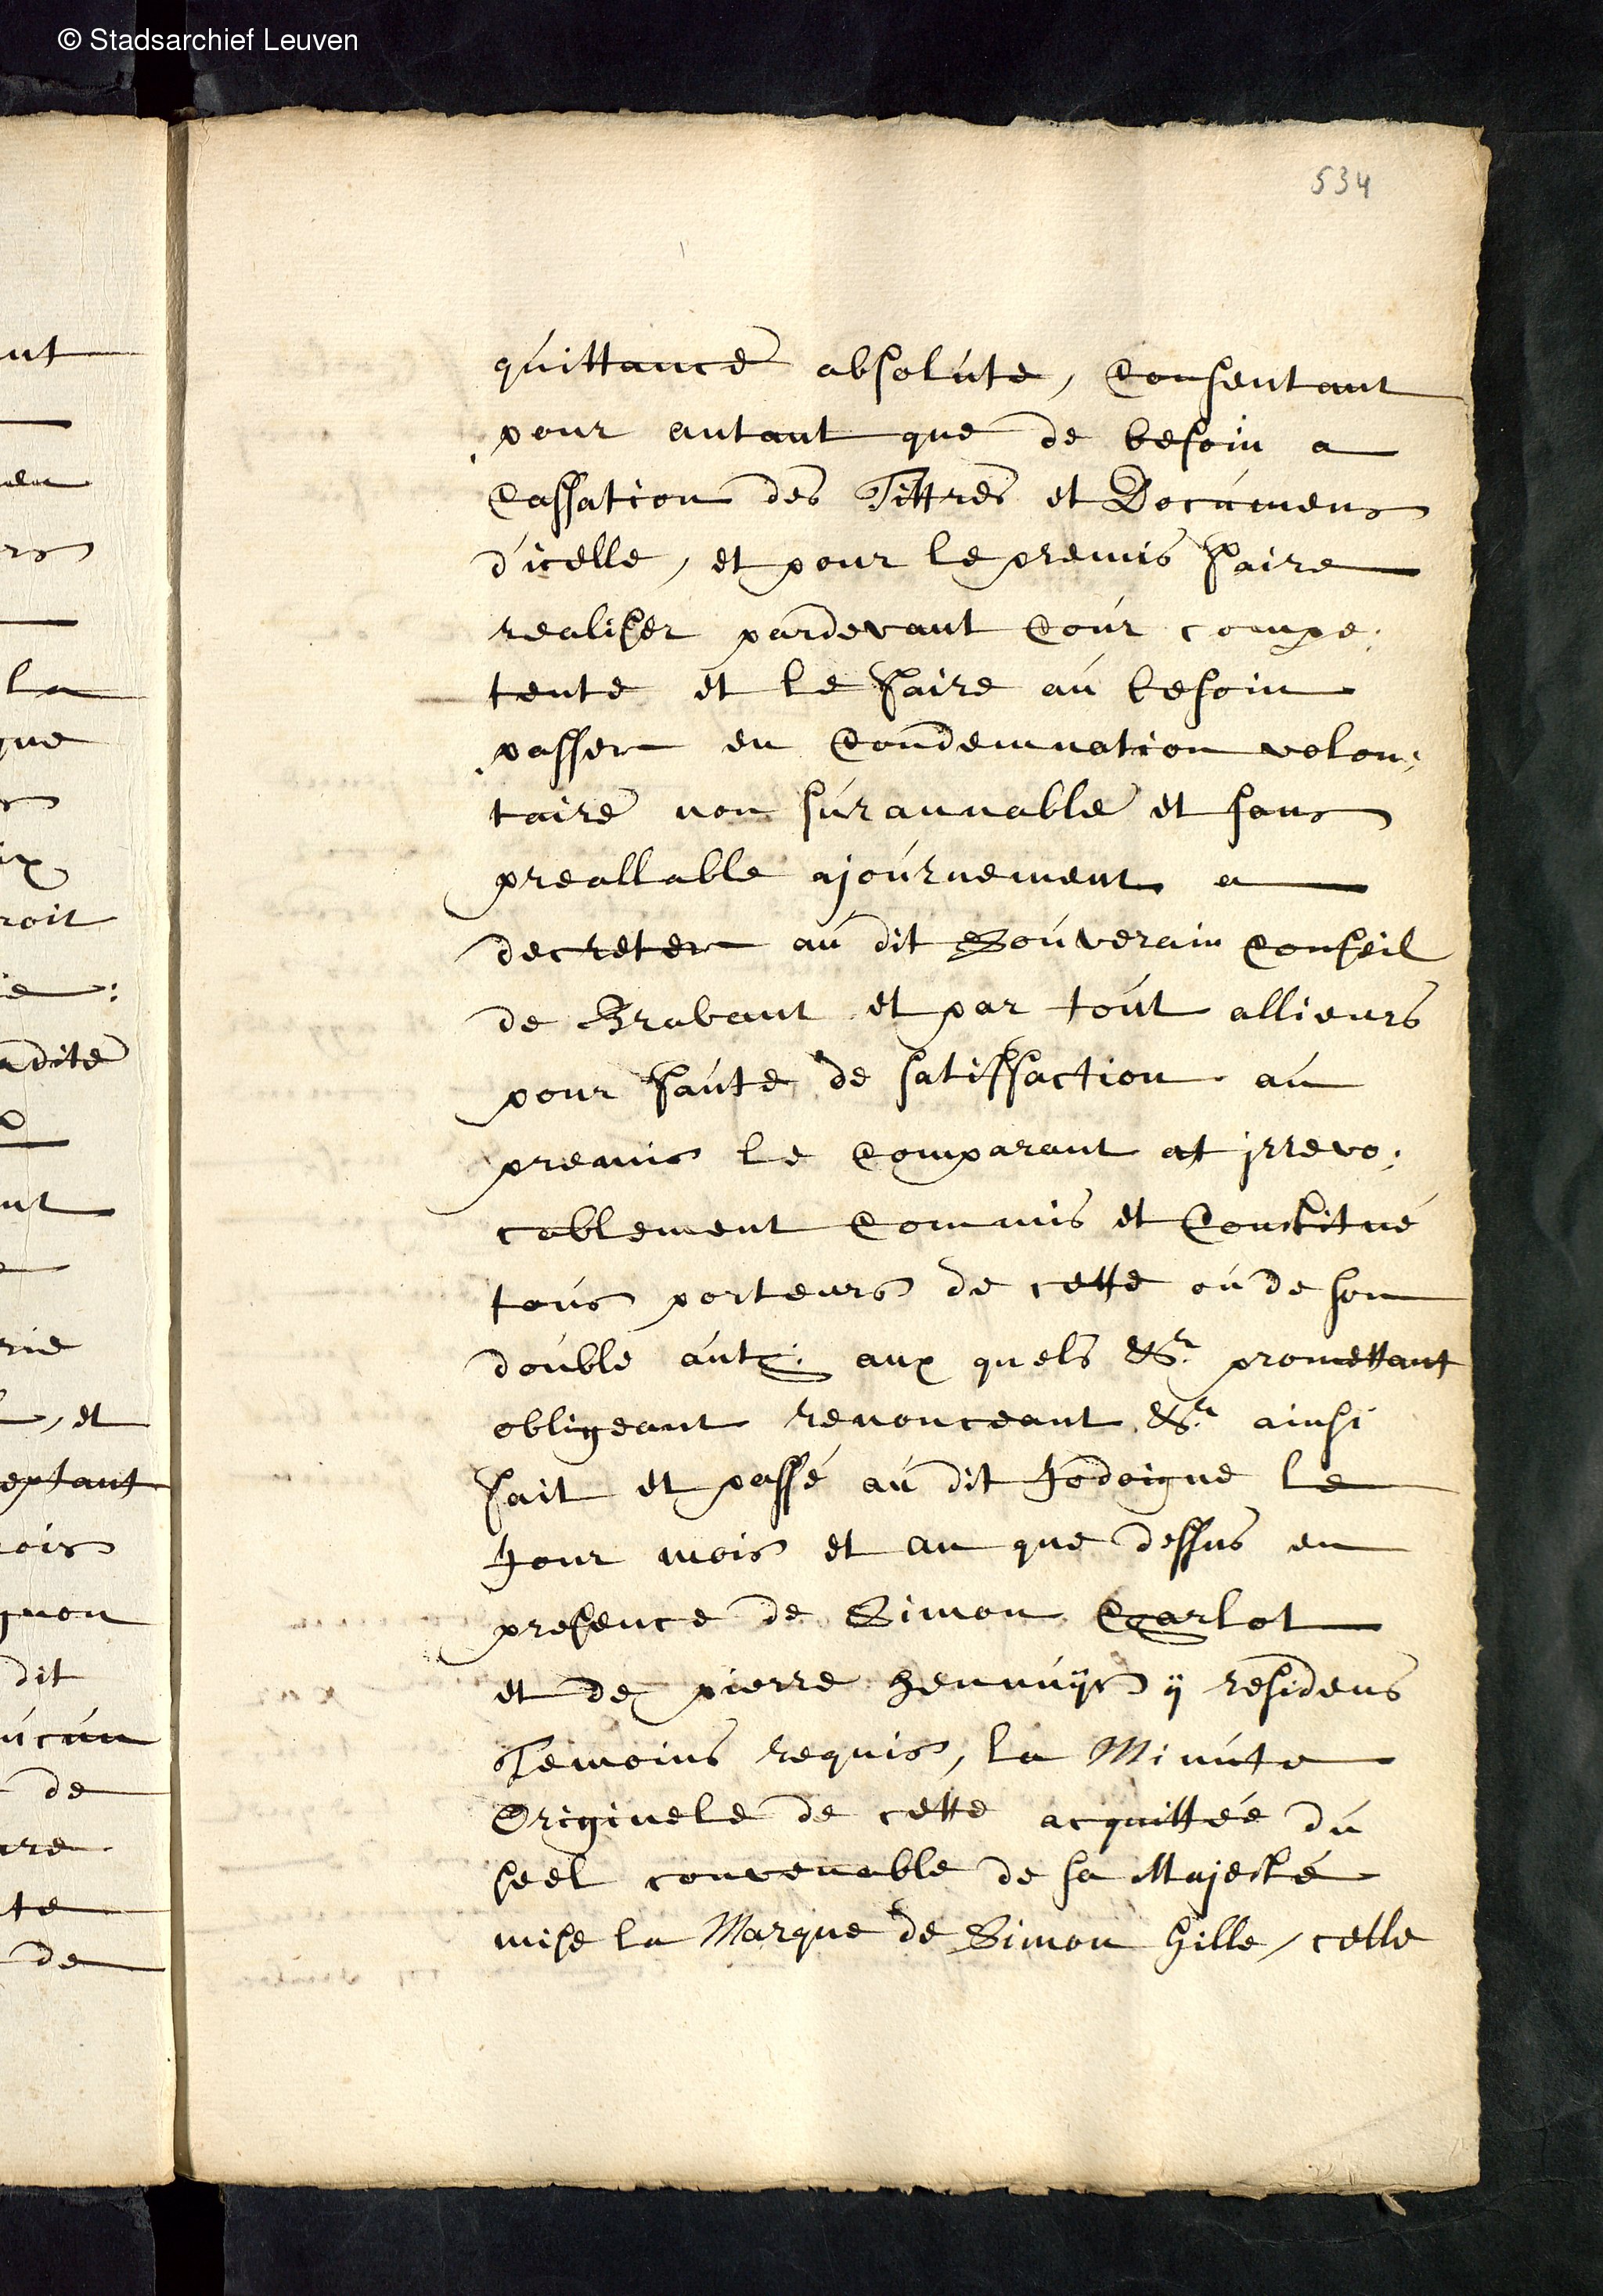 © Stadsarchief Leuven
534
quittance absolute, Consentant
pour autant que de besoin a
Cassation des Tittres et Documens
d'icelle, et pour le premis faire
realiser pardevant Cour compe,
tente et le faire au besoin
passer en Condemnation volon,
taire non surannable et sans
preallable ajournement a
decreter au dit Souverain Conseil
de Brabant et par tout allieurs
pour faute de satisfaction au
premis le Comparant at irrevo,
cablement Commis et Constitué
tous porteurs de cette ou de son
double aut: aux quels &r. promettant
obligeant renonceant &r. ainsi
fait et passé au dit Jodoigne le
Jour mois et an que dessus en
presence de Simon Carlot
et de pierre Hennuÿs ÿ residens
Temoins requis, la Minute
Originele de cette acquittée du
seel convenable de sa Majesté
mise la Marque de Simon hille, celle